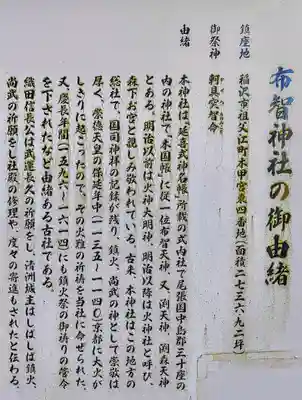 布智神社の御由緒
鎮座地　稲沢市祖父江町本甲宮東四番地(面積二七三六・九二坪)
御祭神　軻具突智命
由緒
本神社は、延喜式神名帳所載の式内社で尾張国中島郡三十座の
内の神社で、本国帳に従一位布智天神　又　渕天神　渕森天神
とある。明治以前は火神大明神、明治以降は火神社と呼び、
森下お宮と親しみ敬われている。古来、本神社はこの地方の
総社で、国司神拝の記録が残り、鎮火、尚武の神として崇敬は
厚く、崇徳天皇の保延年中(一一三五〜一一四〇)京都に大火が
しきりに起こったので、その火難の祈祷を当社に命ぜられた。
又、慶長年間(一五九六〜一六一四)にも鎮火祭の御祈りの啓令
を下されたなど由緒ある古社である。
織田信長公は武運長久の祈願をし、清洲城主はしばしば鎮火、
尚武の祈願をし社殿の修理や、度々の寄進もされたと伝わる。